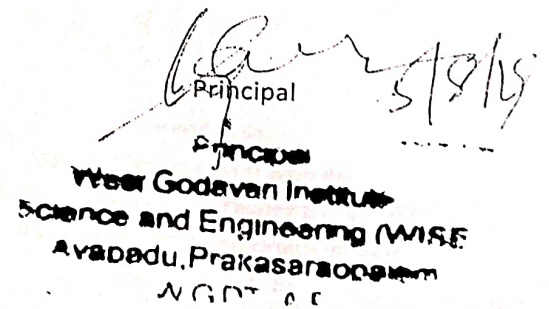 5/8/25
Principal
Principal
West Godavari Institute
Science and Engineering (WISE
Avapadu,Prakasaraopalem